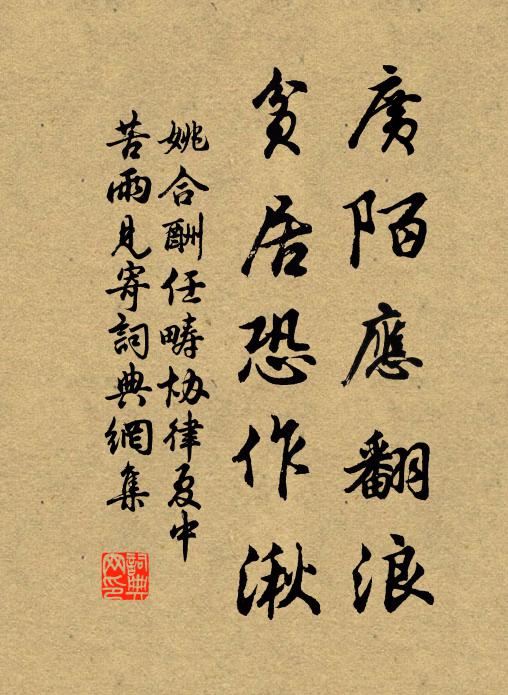 廣陌應翻浪
貧居恐作湫
姚合酬任疇協律夏中
苦雨見寄詞典網集
詞典網印